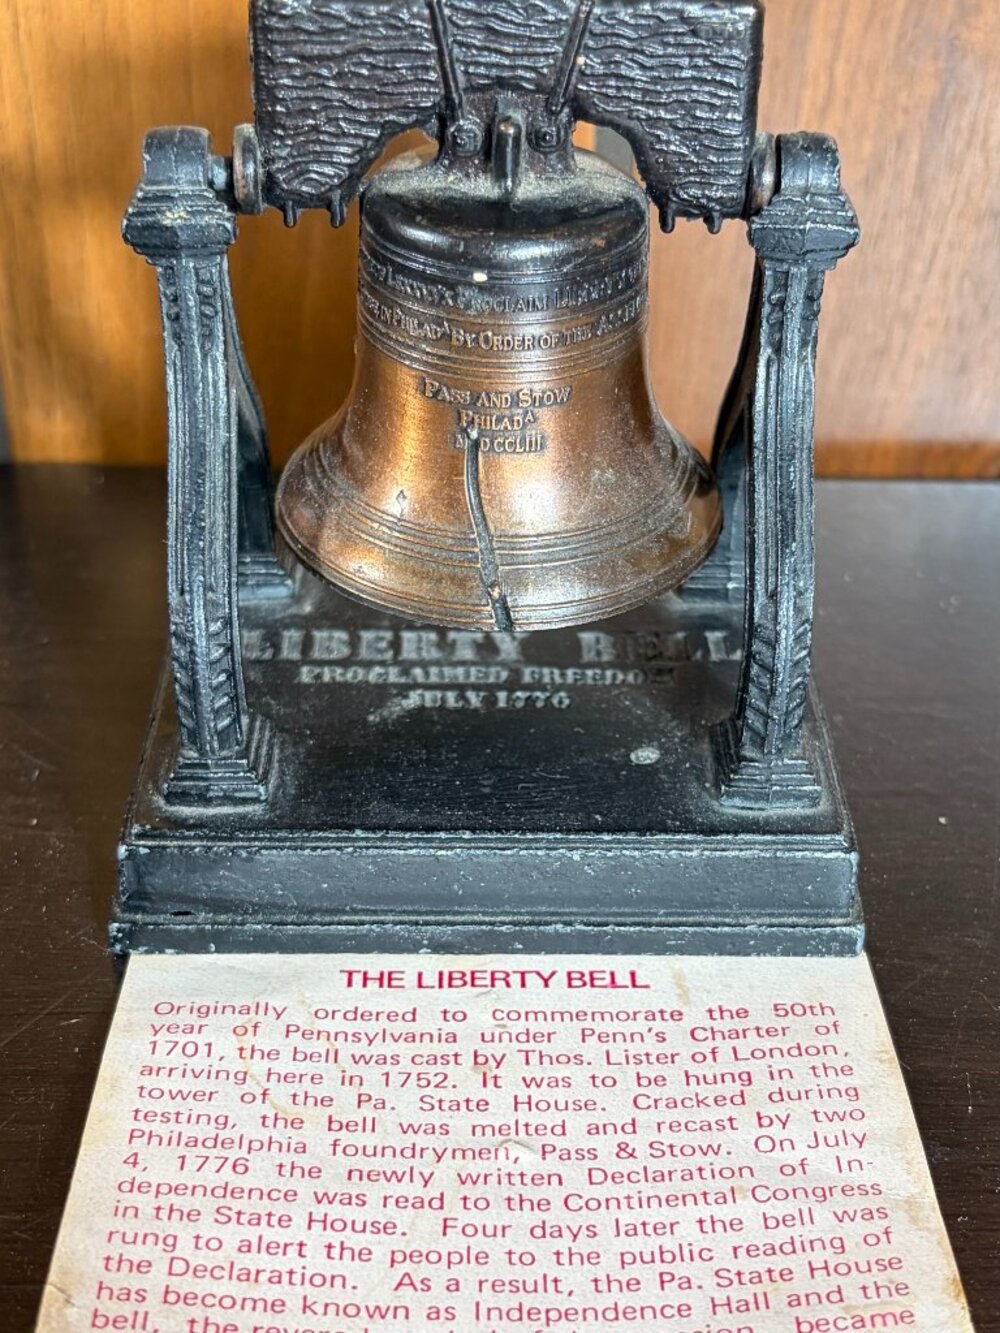 PROCLAIM LIBERTY
IN PHILADA BY ORDER OF THE
PASS AND STOW
PHILADA
MDCCLIII
LIBERTY BELL
PROCLAIMED FREEDOM
JULY 1776
THE LIBERTY BELL
Originally ordered to commemorate the 50th
year of Pennsylvania under Penn's Charter of
1701, the bell was cast by Thos. Lister of London,
arriving here in 1752. It was to be hung in the
tower of the Pa. State House. Cracked during
testing, the bell was melted and recast by two
Philadelphia foundrymen, Pass & Stow. On July
4, 1776 the newly written Declaration of In-
dependence was read to the Continental Congress
in the State House. Four days later the bell was
rung to alert the people to the public reading of
the Declaration. As a result, the Pa. State House
has become known as Independence Hall and the
bell, the became